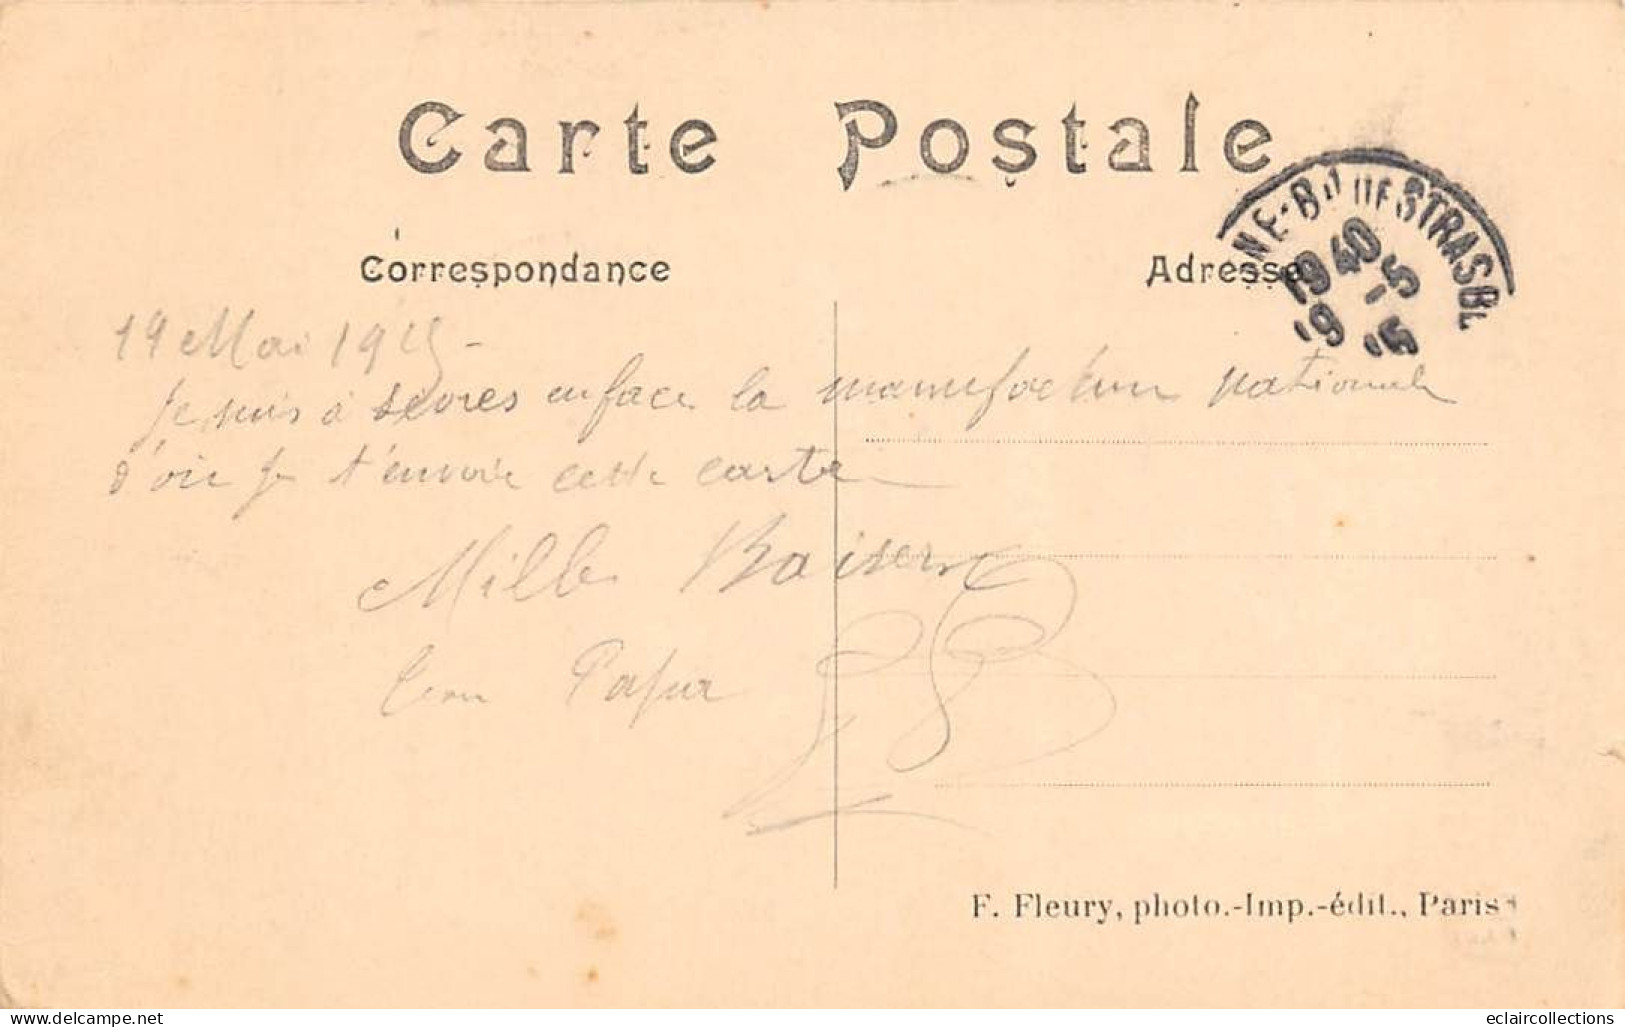 Carte Postale
Correspondance
Adresse
NE-BD DE STRASB
19 40
19 -5
15
19 Mai 1915 -
Je suis à sèvres en face la manufacture nationale
d'où je t'envoie cette carte
Mille Baisers
Ton Papa
F. Fleury, photo.-Imp.-édit., Paris
www.delcampe.net
eclaircollections